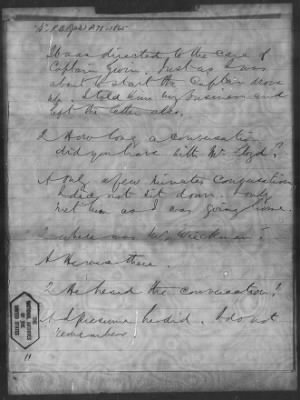 It was directed to the care of
Captain Gwinn. Just as I was
about to start the Captain drove
up. I told him my business and
left the letter also.
Q How long a conversation
did you have with Mr Lloyd?
A Only a few minutes conversation
I did not sit down. I only
met him as I was going home.
Q Where was Mr. Weichman?
A He was there.
Q He heard the conversation?
A I presume he did. I do not
remember.
11